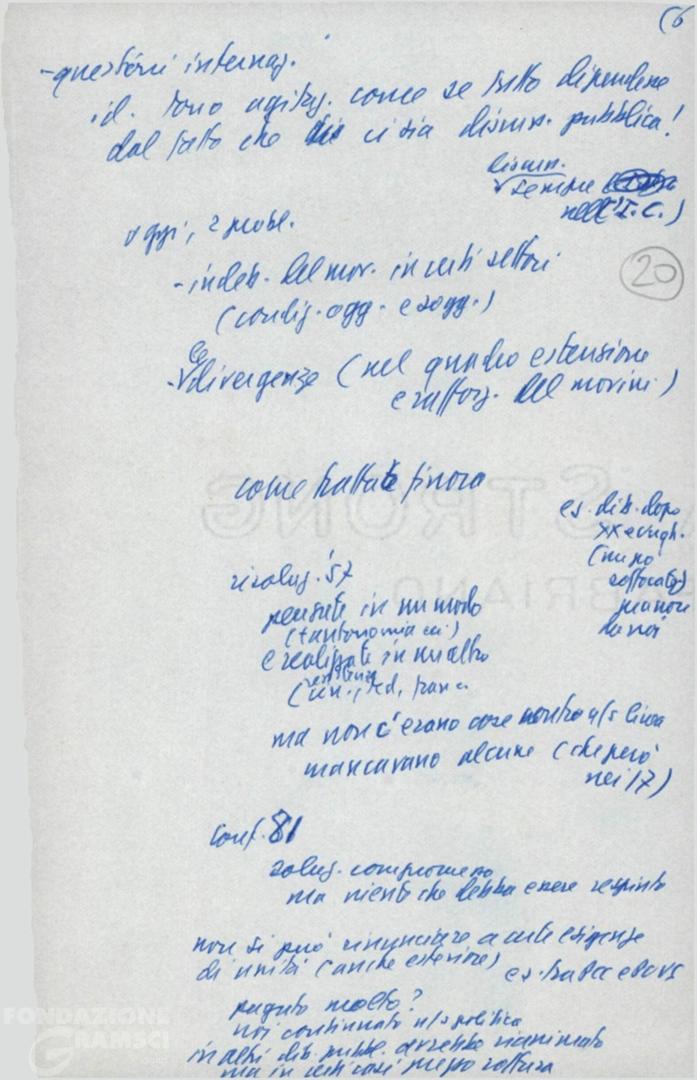 (6
- questioni internaz.
id. sono agitaz. come se tutto dipendesse
dal fatto che ci sia discuss. pubblica!
discuss.
sempre
nell'I.C.)
oggi, 2 probl.
20
- indeb. del mov. in certi settori
(condiz. ogg. e sogg.)
- le divergenze (nel quadro estensione
e rafforz. del movim.)
come trattate finora
es. dib. dopo
XX congr.
(meno
soffocat
da noi
risoluz. '57
pensate in un modo
(+ autonomia
e realizzate in un altro
resistenza
ma non c'erano cose contro n/s linea
mancavano alcune (che però
nei 17)
conf. 81
soluz. compromesso
ma niente che debba essere respinto
non si può rinunciare a certe esigenze
di unità (anche esteriore)
es. tra PCC e PCUS
pagato molto?
noi continuato n/s politica
in altri dib. pubbl. avrebbe rianimato
ma in certi casi rottura
STRONG
FABRIANO
FONDAZIONE
GRAMSCI